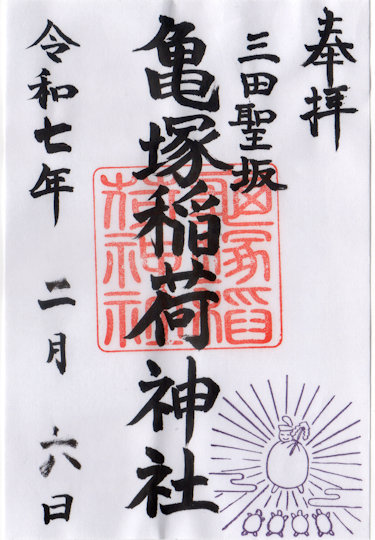 奉拝
三田聖坂
亀塚稲荷神社
亀塚稲
荷神社
令和七年 二月 六日